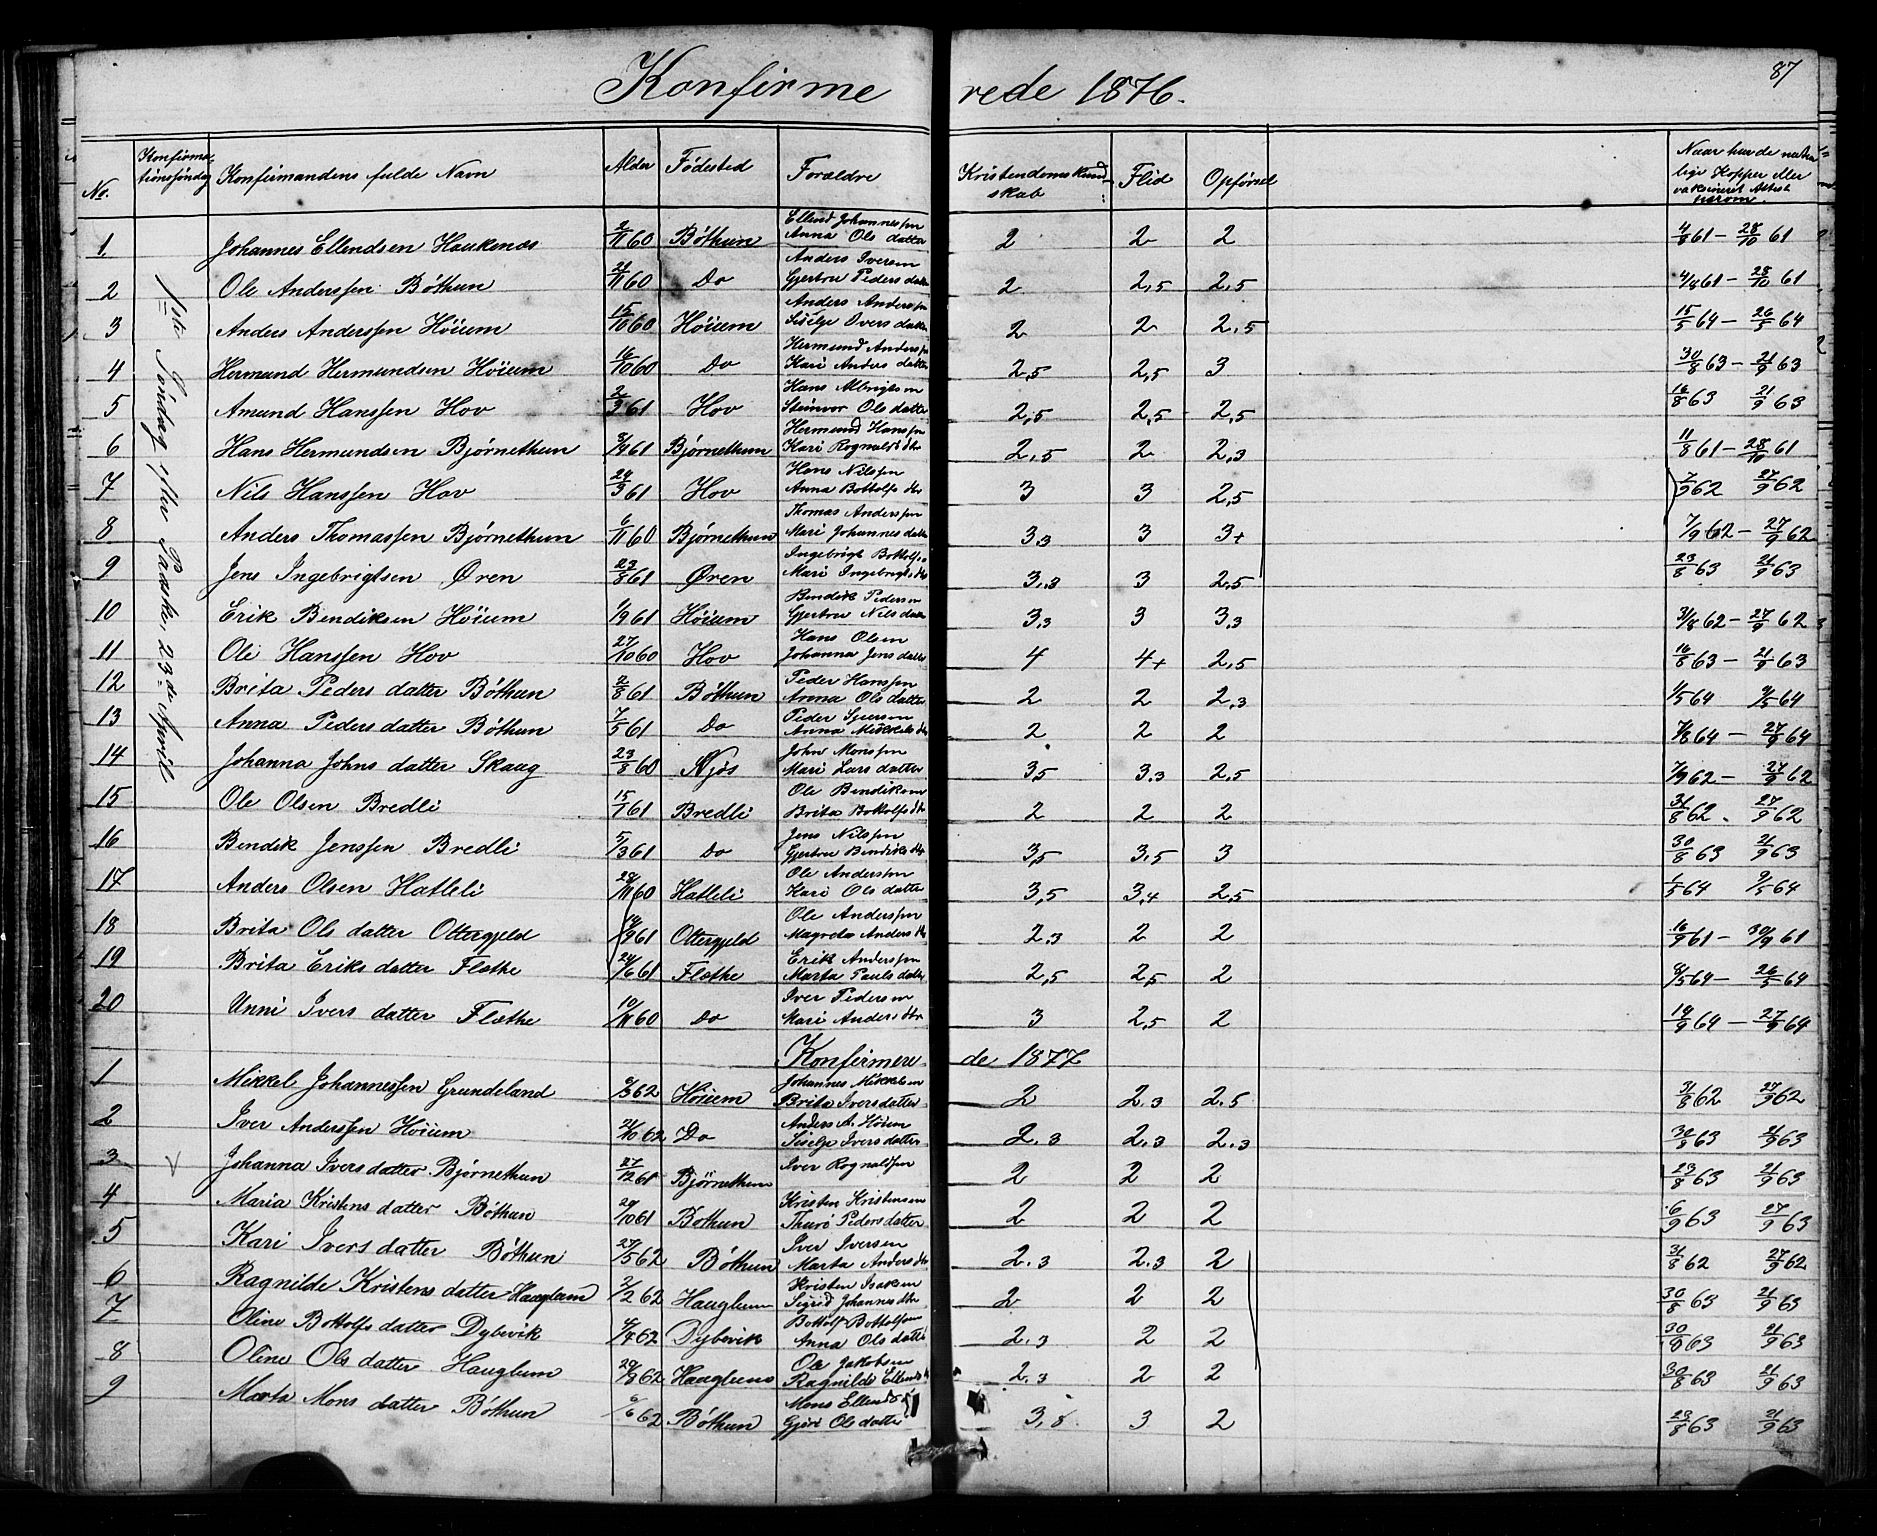 Konfirmerede 1876.
87
No. Konfirmationssøndag Konfirmandens fulde Navn Alder Fødested Forældre Kristendomskundskab Flid Opførsel Naar hun de naturlige Kopper eller vaksineret Attest herom.
1ste Søndag efter Paaske, 23de April
1 Johannes Ellendsen Haukenæs 2/11 60 Bøthun Ellend Johannessen Anna Ols datter 2 2 2 4/8 61 – 28/10 61
2 Ole Anderssen Bøthun 21/11 60 Do Anders Iversen Gjertru Peders datter 2 2,5 2,5 4/8 61 – 28/10 61
3 Anders Anderssen Høium 15/10 60 Høium Anders Anderssen Siselje Ivers datter 2 2 2,5 15/5 64 – 26/5 64
4 Hermund Hermundsen Høium 16/10 60 Do Hermund Anderssen Kari Anders datter 2,5 2,5 3 30/8 63 – 21/9 63
5 Amund Hanssen Hov 2/3 61 Hov Hans Albrigtsen Steinvor Ols datter 2,5 2,5 2,5 16/8 63 21/9 63
6 Hans Hermundsen Bjørnethun 3/4 61 Bjørnethun Hermund Hanssen Kari Rognalds dtr 2,5 2 2,3 11/8 61 – 28/10 61
7 Nils Hanssen Hov 24/3 61 Hov Hans Nilssen Anna Bottolfs dtr 3 3 2,5 7/9 62 27/9 62
8 Anders Thomassen Bjørnethun 6/11 60 Bjørnethun Thomas Anderssen Mari Johannes datter 3,3 3 3+ 7/9 62 – 27/9 62
9 Jens Ingebrigtsen Øren 23/8 61 Øren Ingebrigt Bottolfs. Mari Ingebrigts dtr 3,3 3 2,5 23/8 63 21/9 63
10 Erik Bendiksen Høium 1/9 61 Høium Bendik Pedersen Gjertru Nils datter 3,3 3 3,3 31/8 62 – 27/9 62
11 Ole Hanssen Hov 27/10 60 Hov Hans Olsen Johanna Jens datter 4 4+ 2,5 16/8 63 – 21/9 63
12 Brita Peders datter Bøthun 2/8 61 Bøthun Peder Hanssen Anna Ols datter 2 2 2,3 1/5 64 9/5 64
13 Anna Peders datter Bøthun 7/5 61 Do Peder Sjursen Anna Mikkels dtr 2 2 2 7/8 64 – 27/9 64
14 Johanna Johns datter Skaug 23/8 60 Njøs John Monssen Mari Lars datter 3,5 3.3 2,5 7/9 62 – 27/9 62
15 Ole Olsen Bredli 15/1 61 Bredli Ole Bendiksen Brita Bottolfs dtr 2 2 2 31/8 62 27/9 62
16 Bendik Jenssen Bredli 5/3 61 Do Jens Nilssen Gjertru Bendiks dtr 3,5 3,5 3 30/8 63 21/9 63
17 Anders Olsen Hatleli 28/11 60 Hatleli Ole Anderssen Kari Ols datter 3,5 3,4 2,5 1/5 64 9/5 64
18 Brita Ols datter Ottergjeld 14/9 61 Ottergjeld Ole Anderssen Magreta Anders dtr 2.3 2 2 16/9 61 – 30/9 61
19 Brita Eriks datter Flæthe 24/6 61 Flæthe Erik Anderssen Marta Pauls datter 2,5 2,5 2 8/5 64 – 26/5 64
20 Unni Ivers datter Flæthe 10/11 60 Do Iver Pedersen Mari Anders dtr 3 2,5 2 14/9 64 – 27/9 64
Konfirmerede 1877
1 Mikkel Johannessen Grundeland 6/3 62 Høium Johannes Mikkelsen Brita Iversdatter 2 2.3 2.5 31/8 62 27/9 62
2 Iver Anderssen Høium 24/10 62 Do Anders A. Høium Siselje Ivers datter 2.3 2.3 2.3 30/8 63 21/9 63
3 Johanna Ivers datter Bjørnethun 27/12 61 Bjørnethun Iver Rognaldsen 2 2 2 23/8 63 21/9 63
4 Maria Kristens datter Bøthun 20/10 61 Bøthun Kristen Kristensen Thuri Peders datter 2 2 2 6/9 63 27/9 63
5 Kari Ivers datter Bøthun 27/5 62 Bøthun Iver Iversen Marta Anders dtr 2.3 2.3 2 31/8 62 27/9 62
6 Ragnilde Kristens datter Hauglum 2/2 62 Hauglum Kristen Isaksen Sigrid Johannes dtr 2 2 2 30/8 63 21/9 63
7 Oline Bottolfs datter Dybevik 4/4 62 Dybevik Bottolf Bottolfsen Anna Ols datter 2.3 2 2 30/8 63 21/9 63
8 Oline Ols datter Hauglum 29/8 62 Hauglum Ole Jakobsen Ragnilde Ellends d 2.3 2 2 30/8 63 21/9 63
9 Marta Mons datter Bøthun 6/6 62 Bøthun Mons Ellends Gjøri Ols datter 3,8 3 2 23/8 63 21/9 63